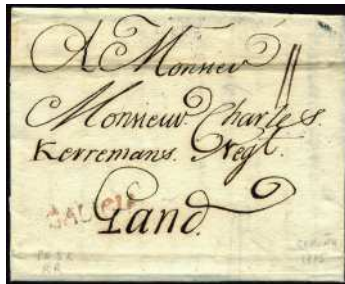 A Monsieur
Monsieur Charles
Kerremans. Negt.
GALICIA
Gand.